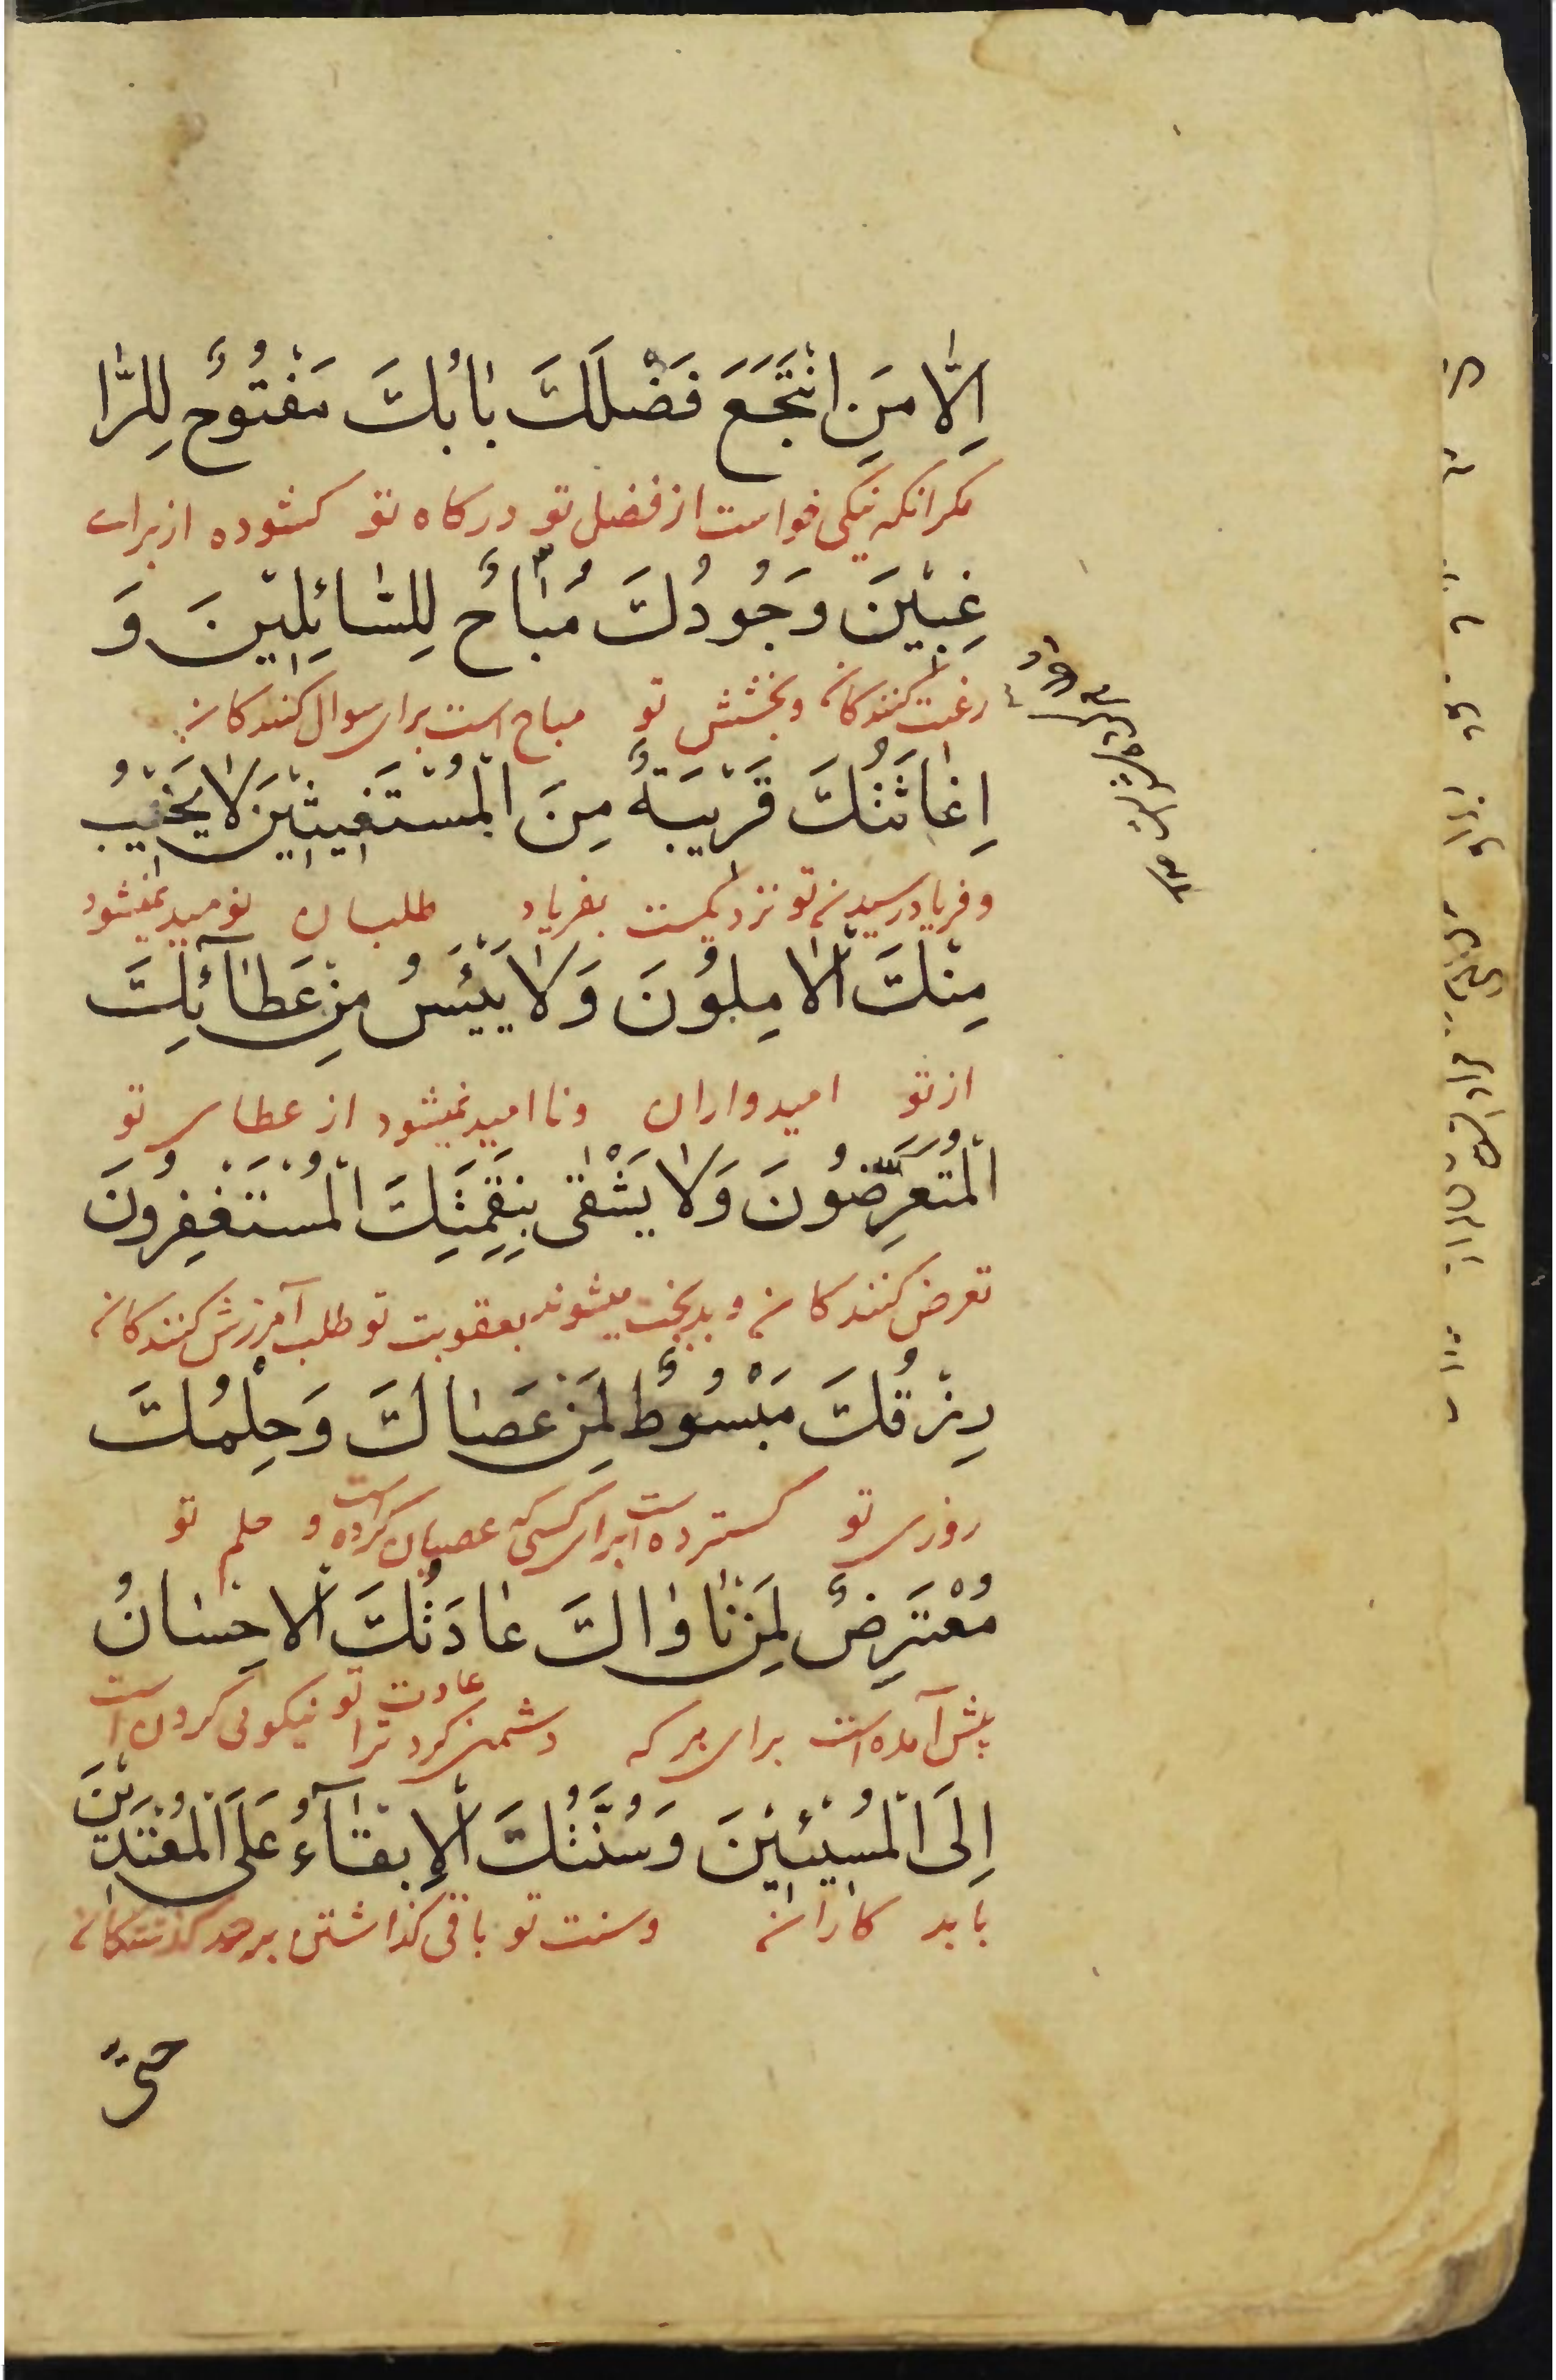 اِلّا مَنِ انْتَجَعَ فَضْلَكَ بٰابُكَ مَفْتُوحٌ لِلرّٰا
مکر انکه نیکی خواست از فضل تو درکاه تو کشوده از برای
غِبيْنَ وَجُودُكَ مُبٰاحٌ لِلسّٰائِلِيْنَ وَ
رغبت کنندکان وبخشش تو مباح است برای سوال کنندکان
اِغٰاثَتُكَ قَرْيبَةٌ مِنَ الْمُسْتَغيثيْنَ لٰا يَخيْبُ
وفریاد رسیدن تو نزدیکست بفریاد طلبان نومید نمیشود
مِنْكَ الْاٰمِلُونَ وَلٰا يَيْئَسُ مِنْ عَطٰآئِكَ
از تو امیدواران ونا امید نمیشود از عطای تو
الْمُتَعَرِّضُونَ وَلٰا يَشْقٰى بِنِقْمَتِكَ الْمُسْتَغْفِرُونَ
تعرض کنندکان وبدبخت میشوند بعقوبت تو طلب آمرزش کنندکان
رِزْقُكَ مَبْسُوْطٌ لِمَنْ عَصٰاكَ وَحِلْمُكَ
روزی تو کسترده است برای کسی که عصیان کرده است و حلم تو
مُعْتَرِضٌ لِمَنْ نٰاوٰاكَ عٰادَتُكَ الْاِحْسٰانُ
پیش آمده است برای هر که دشمنی کرد ترا عادت تو نیکوئی کردن است
اِلَى الْمُسيْئيْنَ وَسُنَّتُكَ الْاِبْقٰآءُ عَلَى الْمُعْتَديْنَ
بابد کاران وسنت تو باقی کذاشتن برحد کذشتکان
حتّى